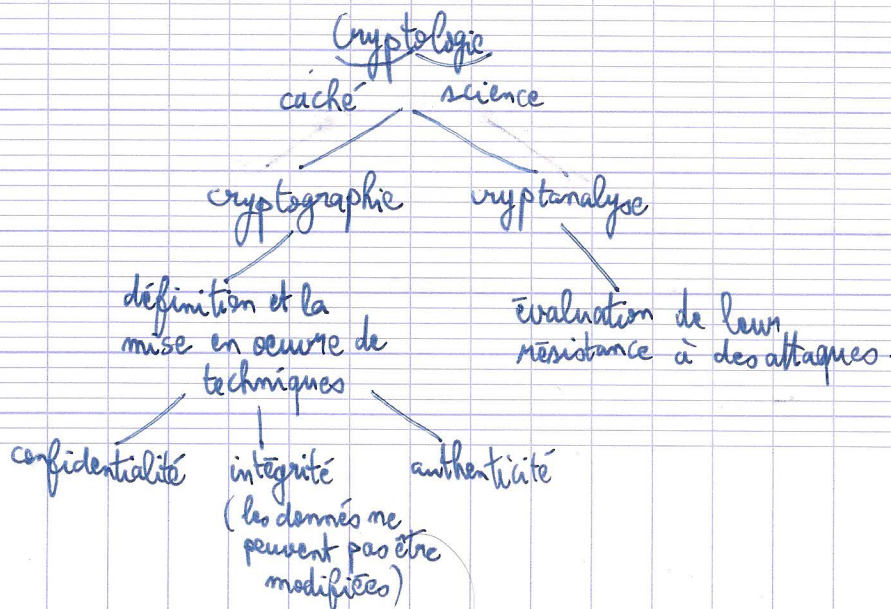 Cryptologie
caché science
cryptographie cryptanalyse
définition et la
mise en oeuvre de
techniques
évaluation de leur
résistance à des attaques.
confidentialité intégrité authenticité
(les donnés ne
peuvent pas être
modifiées)